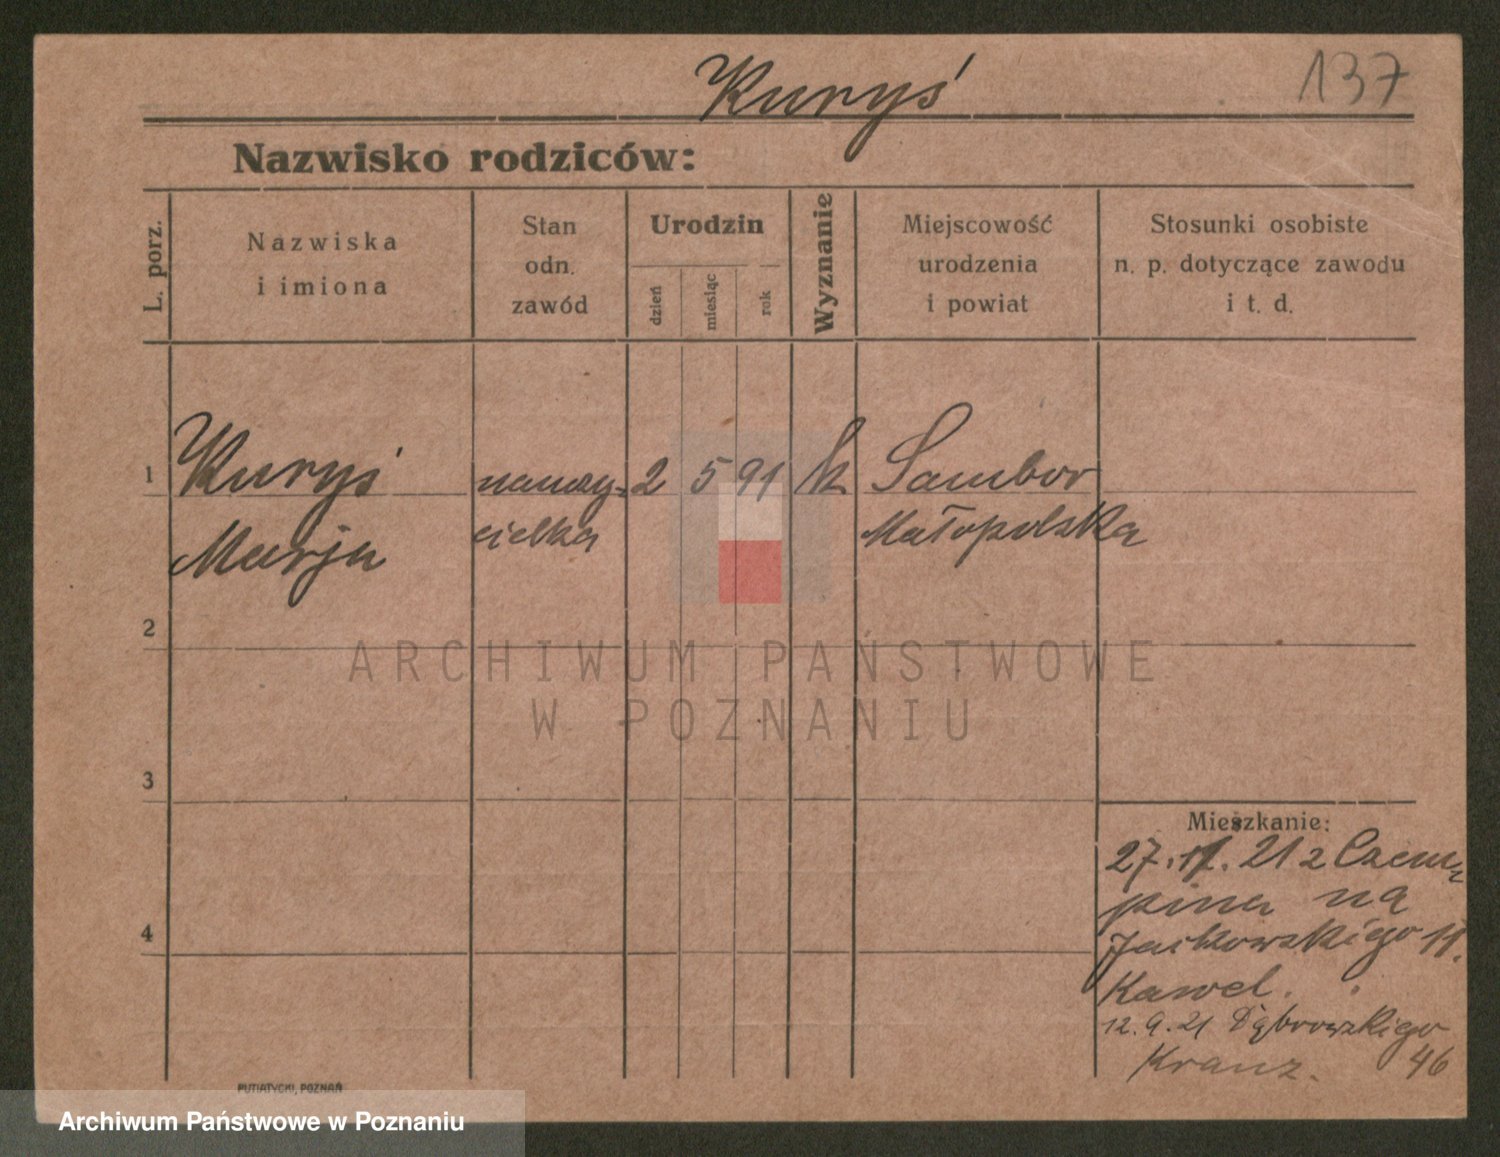 Kuryś
137
Nazwisko rodziców:
L. porz.
Nazwiska
i imiona
Stan
odn.
zawód
Urodzin
dzień
miesiąc
rok
Wyznanie
Miejscowość
urodzenia
i powiat
Stosunki osobiste
n. p. dotyczące zawodu
i t. d.
1 Kuryś nauczy- 2 5 91 k Sambor
Marja cielka Małopolska
2
ARCHIWUM PAŃSTWOWE
W POZNANIU
3
Mieszkanie:
27. . 21 z Czem-
pina na
4 Jackowskiego 11.
Kawel.
12. 9. 21 Dąbrowskiego
Kranz. 46
PUTIATYCKI, POZNAŃ
Archiwum Państwowe w Poznaniu